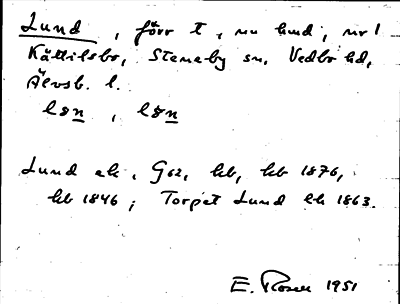 Lund, förr t, nu hmd, nr 1
Kättilsbo, Steneby sn, Vedbo hd,
Älvsb. l.
Lund ek, G62, hb, hb 1876,
hb 1846; Torpet Lund eh 1863.
E. Rosell 1951